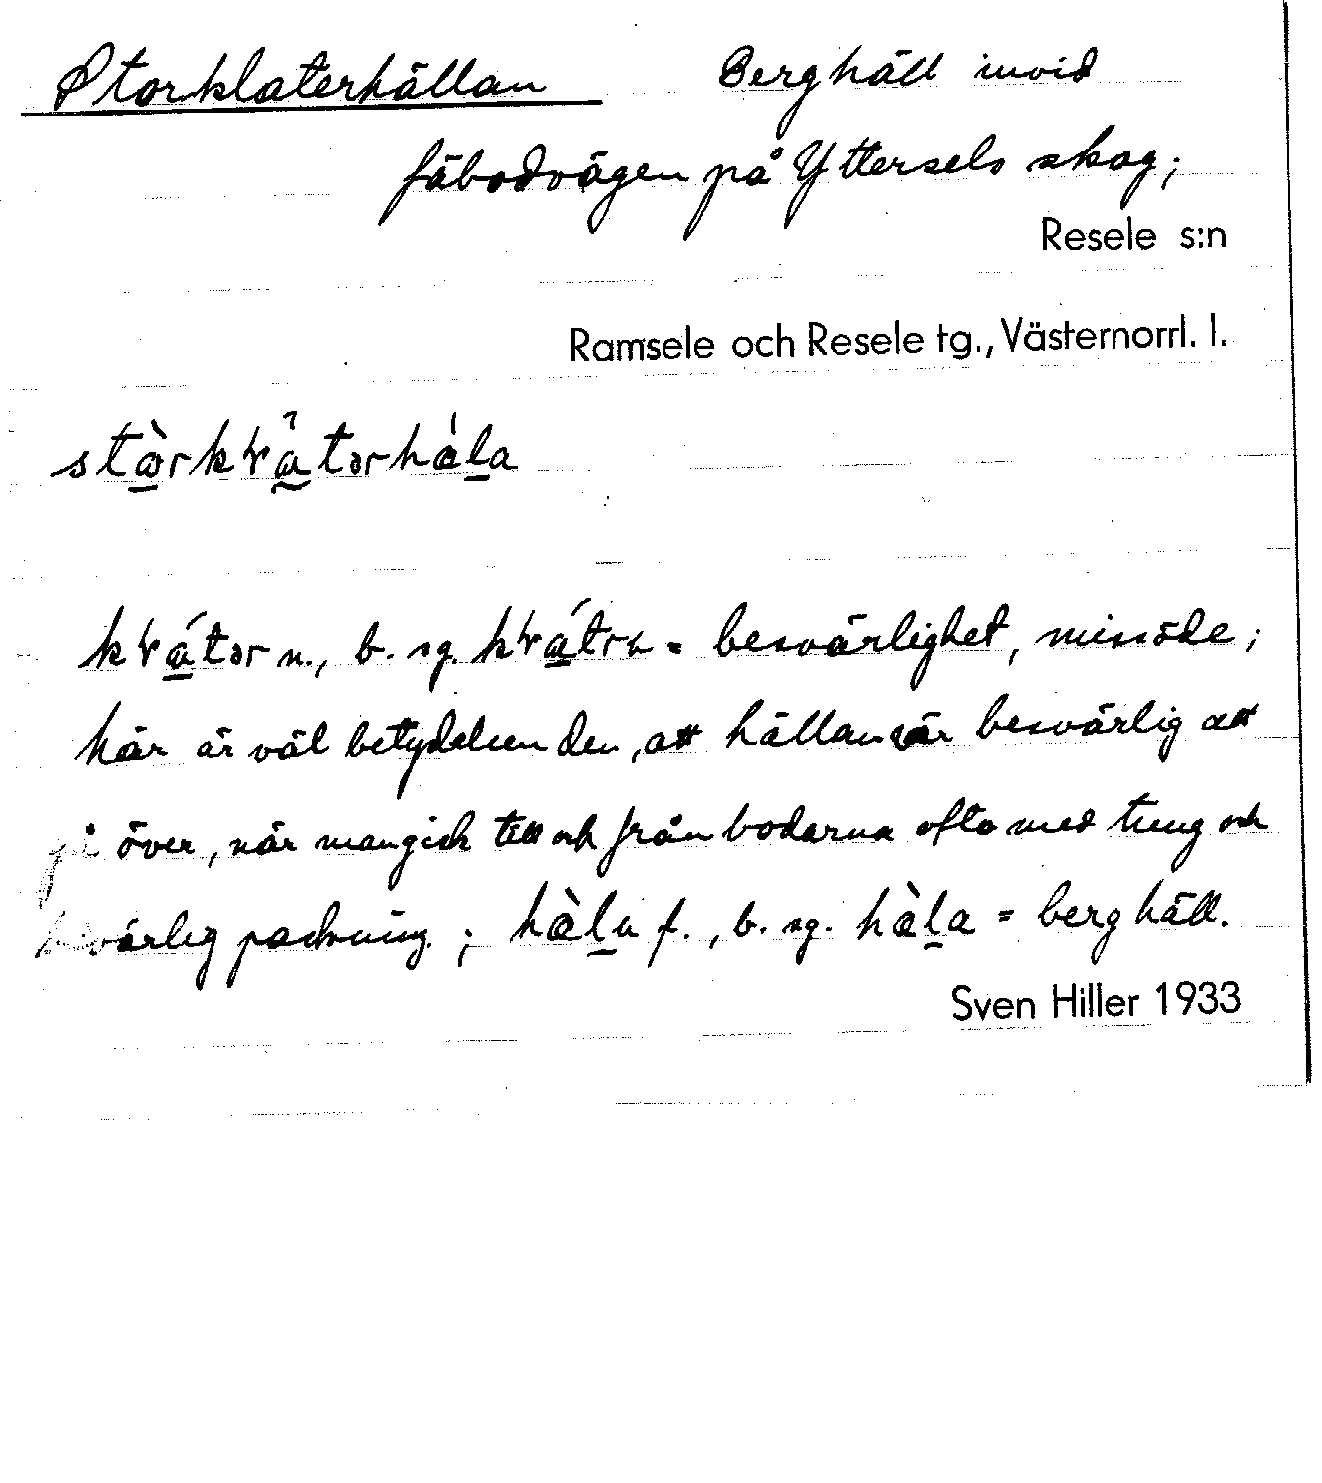 Storklaterhällan Berghäll invid
fäbodvägen på Yttersels skog;
Resele s:n
Ramsele och Resele tg., Västernorrl. l.
stòrkɽa̭tərhála
kɽátər n., b. sg. kɽátrɴ = besvärlighet, missöde;
här är väl betydelsen den, att hällan är besvärlig att
gå över, när man gick till och från boderna ofta med tung och
besvärlig packning; hàlu f., b. sg. hàla = berghäll.
Sven Hiller 1933